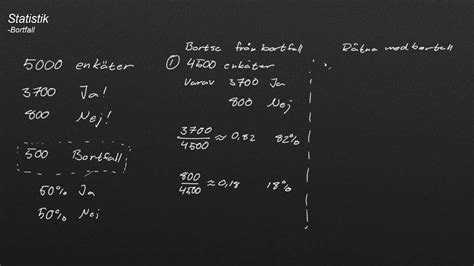 Statistik
-Bortfall
5000 enkäter
3700 Ja!
800 Nej!
500 Bortfall
50% Ja
50% Nej
Bortse från bortfall
① 4500 enkäter
Varav 3700 Ja
800 Nej
3700/4500 ≈ 0,82 82%
800/4500 ≈ 0,18 18%
Räkna med bortfall